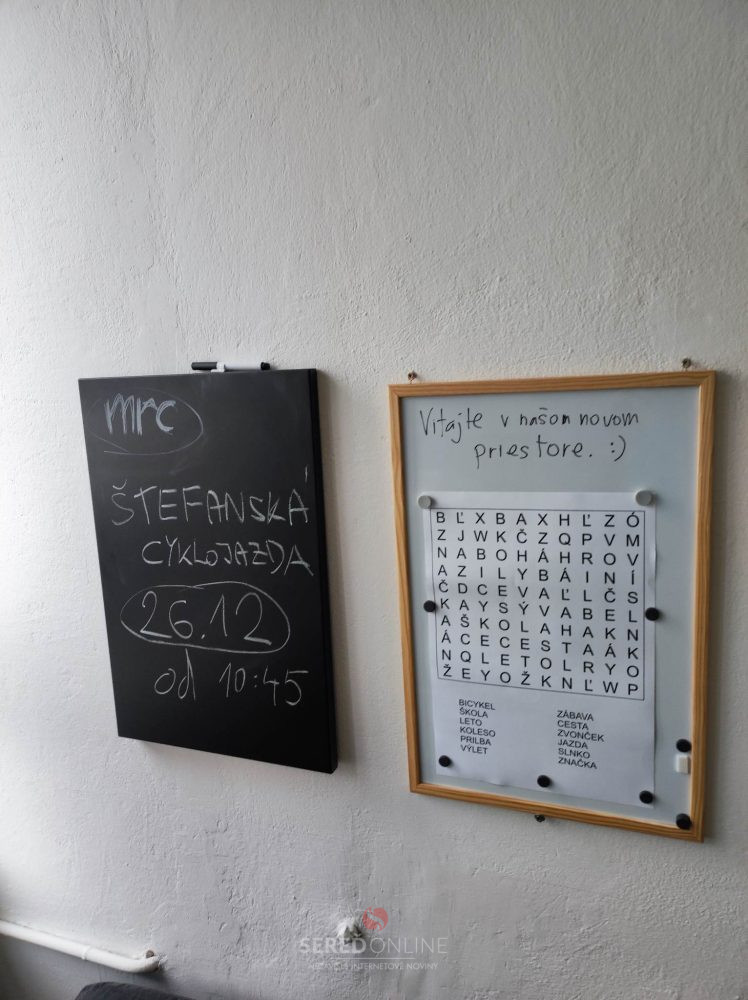 mrc
ŠTEFANSKÁ
CYKLOJAZDA
26.12
od 10:45
Vitajte v našom novom
priestore. :)
B Ľ X B A X H Ľ Z Ó
Z J W K Č Z Q P V M
N A B O H Á H R O V
A Z I L Y B Á I N Í
Č D C E V A Ľ L Č S
K A Y S Ý V A B E L
A Š K O L A H A K N
Á C E C E S T A Á K
N Q L E T O L R Y O
Ž E Y O Ž K N Ľ W P
BICYKEL
ŠKOLA
LETO
KOLESO
PRILBA
VÝLET
ZÁBAVA
CESTA
ZVONČEK
JAZDA
SLNKO
ZNAČKA
SEREDONLINE
INTERNETOVÉ NOVINY